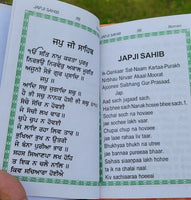 JAPJI SAHIB
ਜਪੁ ਜੀ ਸਾਹਿਬ
ੴ ਸਤਿ ਨਾਮੁ ਕਰਤਾ ਪੁਰਖੁ
ਨਿਰਭਉ ਨਿਰਵੈਰੁ ਅਕਾਲ ਮੂਰਤਿ
ਅਜੂਨੀ ਸੈਭੰ ਗੁਰ ਪ੍ਰਸਾਦਿ ॥
॥ ਜਪੁ ॥
ਆਦਿ ਸਚੁ ਜੁਗਾਦਿ ਸਚੁ ॥
ਹੈ ਭੀ ਸਚੁ ਨਾਨਕ ਹੋਸੀ ਭੀ ਸਚੁ ॥
ਸੋਚੈ ਸੋਚਿ ਨ ਹੋਵਈ
ਜੇ ਸੋਚੀ ਲਖ ਵਾਰ ॥
ਚੁਪੈ ਚੁਪ ਨ ਹੋਵਈ
ਜੇ ਲਾਇ ਰਹਾ ਲਿਵ ਤਾਰ ॥
ਭੁਖਿਆ ਭੁਖ ਨ ਉਤਰੀ
ਜੇ ਬੰਨਾ ਪੁਰੀਆ ਭਾਰ ॥
ਸਹਸ ਸਿਆਣਪਾ ਲਖ ਹੋਹਿ
ਤ ਇਕ ਨ ਚਲੈ ਨਾਲਿ ॥
ਕਿਵ ਸਚਿਆਰਾ ਹੋਈਐ
JAPJI SAHIB
JAPJI SAHIB
Ik-Oankaar Sat-Naam Kartaa-Purakh
Nirbhau Nirvair Akaal-Moorat
Ajoonee Saibhang Gur Prasaad.
Jap.
Aad sach jugaad sach.
Hai bhee sach Nanak hosee bhee sach.
Sochai soch na hovaee
je sochee lakh vaar.
Chupai chup na hovaee
je laae rahaa liv taar.
Bhukhiaa bhukh na utree
je bannaa pureeaa bhaar.
Sahas siaanapaa lakh hohe
ta ik na chalai naal.
Kiv sachiaaraa hoeeai